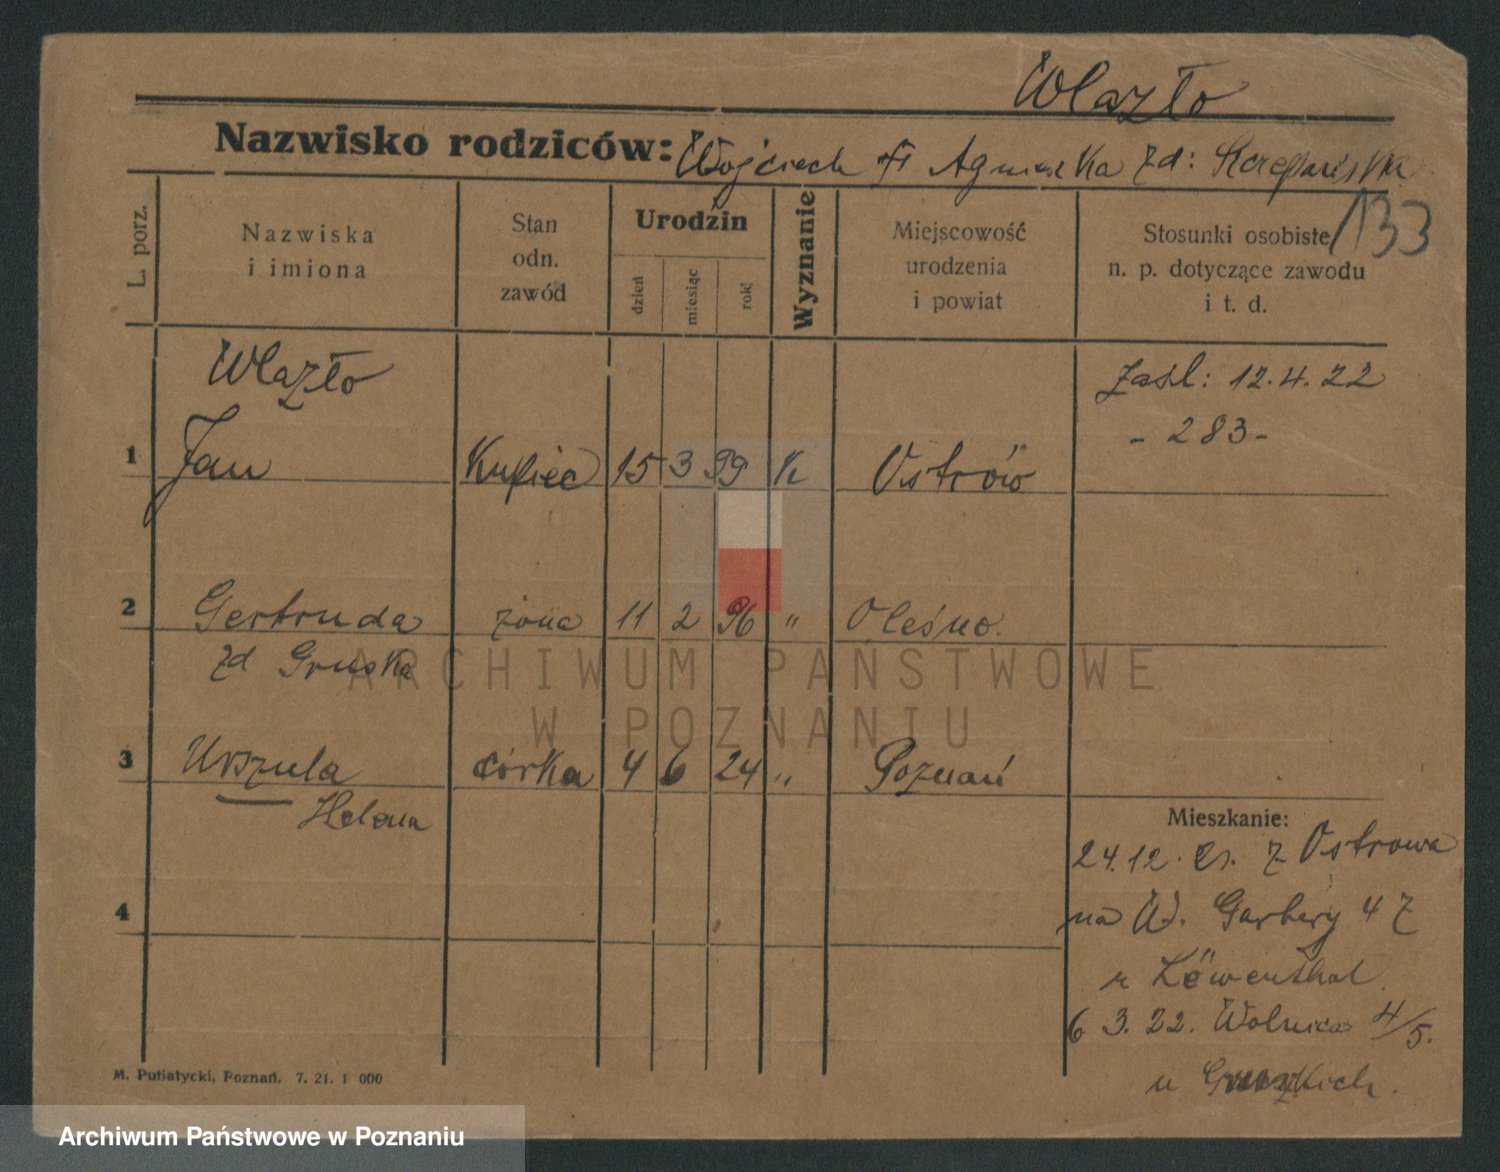 Wlazło
Nazwisko rodziców: Wojciech Agnieszka zd: Szczepańska
133
L. porz.
Nazwiska
i imiona
Stan
odn.
zawód
Urodzin
dzień
miesiąc
rok
Wyznanie
Miejscowość
urodzenia
i powiat
Stosunki osobiste
n. p. dotyczące zawodu
i t. d.
Wlazło
zaśl: 12.4.22
- 283 -
1 Jan Kupiec 15 3 99 K Ostrów
2 Gertruda żona 11 2 96 " Oleśno.
zd Gruska
3 Urszula córka 4 6 24 " Poznań
Helena
Mieszkanie:
24.12. 21. z Ostrowa
4 na W. Garbary 47
u Löwenthal.
6. 3. 22. Wolnica 4/5.
u
M. Putiatycki, Poznań. 7. 21. 1 000
ARCHIWUM PAŃSTWOWE
W POZNANIU
Archiwum Państwowe w Poznaniu